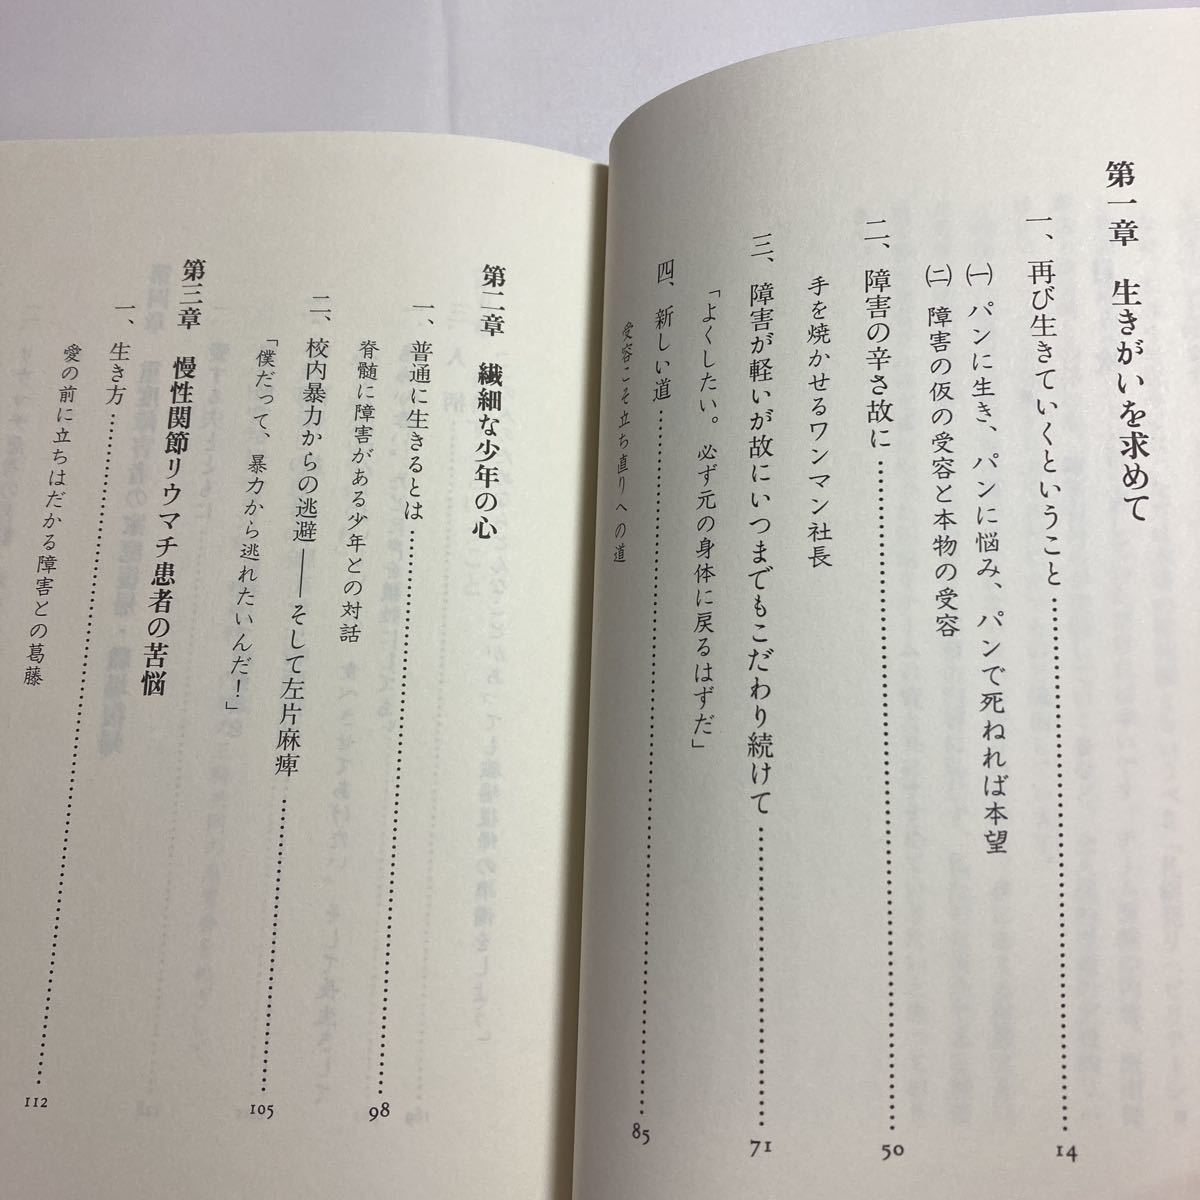 第一章 生きがいを求めて
一、再び生きていくということ…………14
㈠ パンに生き、パンに悩み、パンで死ねれば本望
㈡ 障害の仮の受容と本物の受容
二、障害の辛さ故に…………50
手を焼かせるワンマン社長
三、障害が軽いが故にいつまでもこだわり続けて…………71
「よくしたい。必ず元の身体に戻るはずだ」
四、新しい道…………85
受容こそ立ち直りへの道
第二章 繊細な少年の心
一、普通に生きるとは…………98
脊髄に障害がある少年との対話
二、校内暴力からの逃避――そして左片麻痺…………105
「僕だって、暴力から逃れたいんだ！」
第三章 慢性関節リウマチ患者の苦悩
一、生き方…………112
愛の前に立ちはだかる障害との葛藤